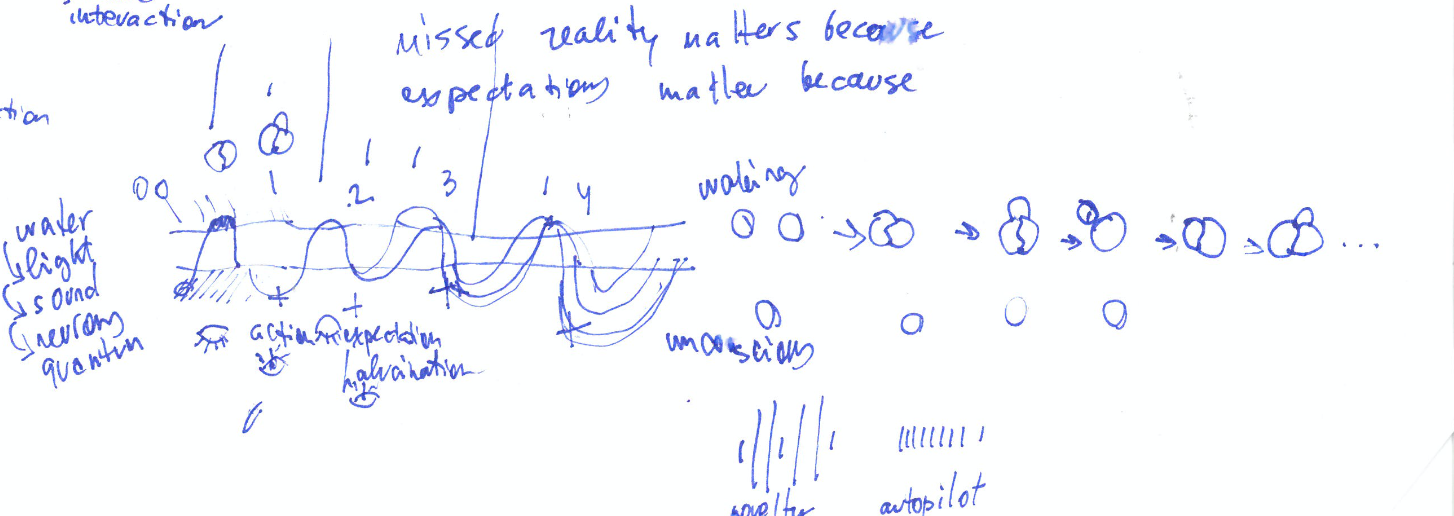 interaction
missed reality matters because
expectations matter because
tion
3
1
2
3
4
water
light
sound
neurons
quantum
action
expectation
halucination
waking
3
3
unconscious
novelty
autopilot